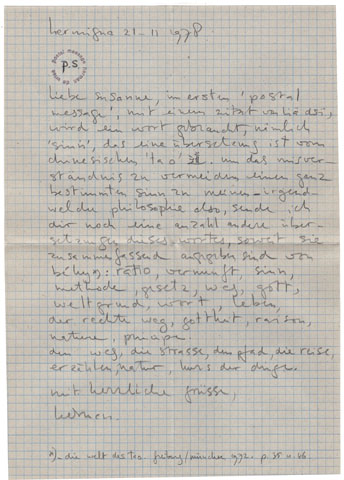 hermigua 21-11 1978
p.s.
liebe susanne, im ersten 'postal
message', mit einem zitat von liä dsi,
wird ein wort gebraucht, nämlich
'sinn', das eine übersetzung ist vom
chinesischen 'tao' 道. um das misver-
ständnis zu vermeiden einen ganz
bestimmten sinn zu meinen - irgend-
welche philosophie also, sende ich
dir noch eine anzahl andere über-
setzungen dieses wortes, soweit sie
zusammenfassend ausgegeben sind von
: ratio, vernunft, sinn,
methode, gesetz, weg, gott,
weltgrund, wort, leben,
der rechte weg, gottheit, raison,
nature, principe.
den weg, die strasse, den pfad, die reise,
erzählen, natur, kurs der dinge.
mit herzliche grüsse,
herman.
*)- die welt des tao. freiburg/münchen p. 55 u. 56.